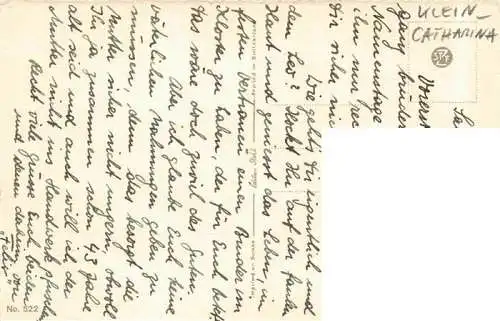 KLEIN-
CATHARINA
Vorerst
Namenstage
ihm nur
Dir sicher
Wie geht's Dir eigentlich und
dem Leo? Hockt Ihr auf der faulen
Haut und geniesst das Leben, im
frohen Vertrauen einen Bruder im
Kloster zu haben, der für Euch betet?
Das wäre doch zuviel des Guten.
Aber ich glaube Euch keine
väterlichen Mahnungen geben zu
müssen, denn das besorgt die
Mutter sicher nicht ungern, obwohl
Ihr ja zusammen schon 43 Jahre
alt seid und auch will ich, der
Mutter nicht ins Handwerk pfuschen.
Recht viele Grüsse Euch beiden
und denen daheim von
"Felix"
No. 522